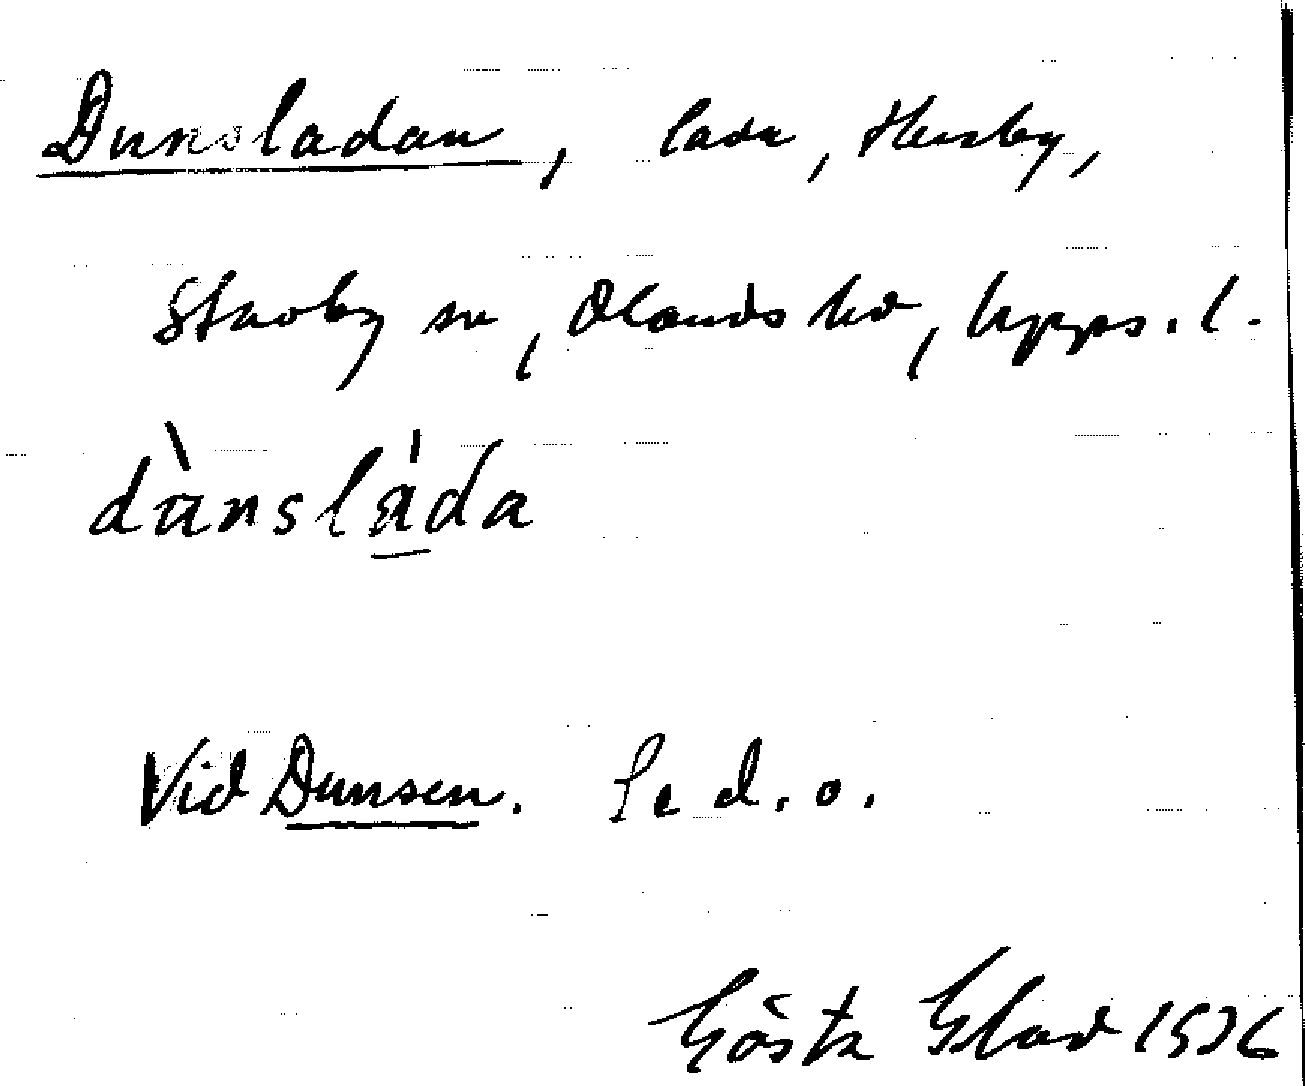 Dunsladan, lada, Husby,
Stavby sn, Olands hd, Upps. l.
dànsláda
Vid Dunsen. Se d. o.
Gösta Blad 1936